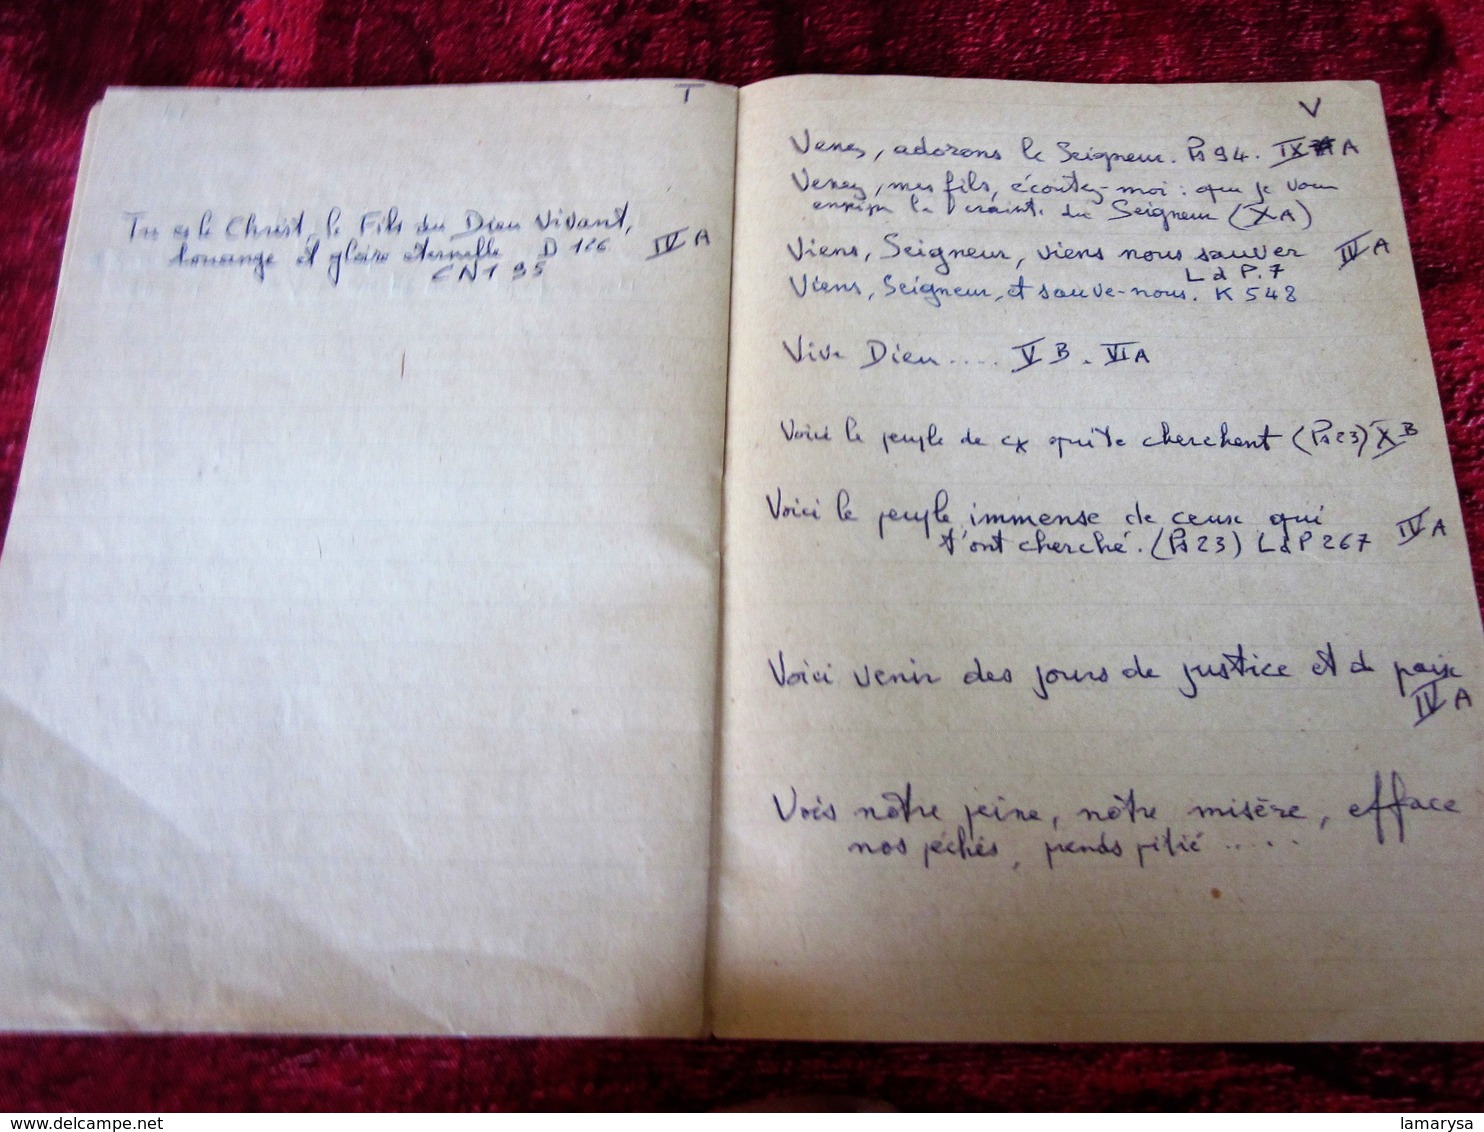 T
Tu es le Christ, le Fils du Dieu Vivant,
louange et gloire éternelle D 126 IV A
CN1 95
V
Venez, adorons le Seigneur. Ps 94. IX A
Venez, mes fils, écoutez-moi : que je vous
enseigne la crainte du Seigneur (X A)
Viens, Seigneur, viens nous sauver IV A
L d P. 7
Viens, Seigneur, et sauve-nous. K 548
Vive Dieu .... V B - VI A
Voici le peuple de cx qui te cherchent (Ps 23) X B
Voici le peuple immense de ceux qui
t'ont cherché. (Ps 23) L d P 267 IV A
Voici venir des jours de justice et de paix
IV A
Vois nôtre peine, nôtre misère, efface
nos péchés, prends pitié .....
delcampe.net
lamarysa